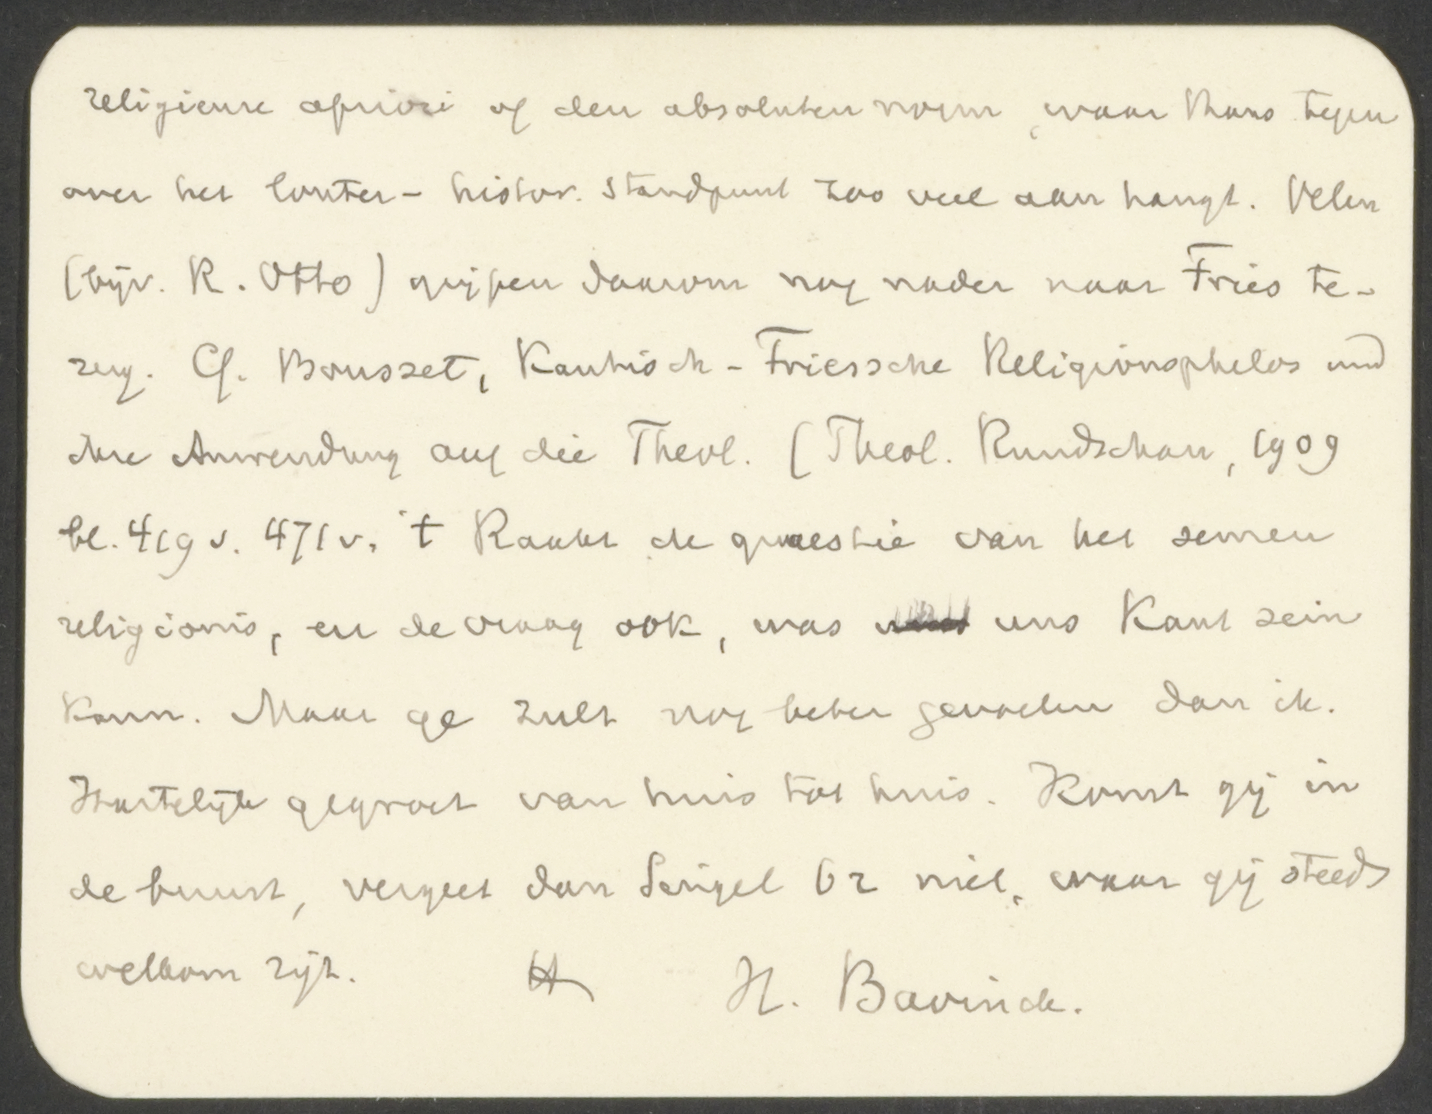 religieuse apriori of den absoluten norm, waar thans tegen
over het louter- histor. standpunt zoo veel aan hangt. Velen
(bijv. R. Otto) grijpen daarom nog nader naar Fries te-
rug. Cf. Bousset, Kantisch-Friessche Religionsphilos und
ihre Anwendung auf die Theol. (Theol. Rundschau, 1909
bl. 419 v. 471 v. 't Raakt de quaestie van het semen
religionis, en de vraag ook, was uns Kant sein
kann. Maar ge zult nog beter gevoelen dan ik.
Hartelijk gegroet van huis tot huis. Komt gij in
de buurt, vergeet dan Singel 62 niet, waar gij steeds
welkom zijt. H. Bavinck.